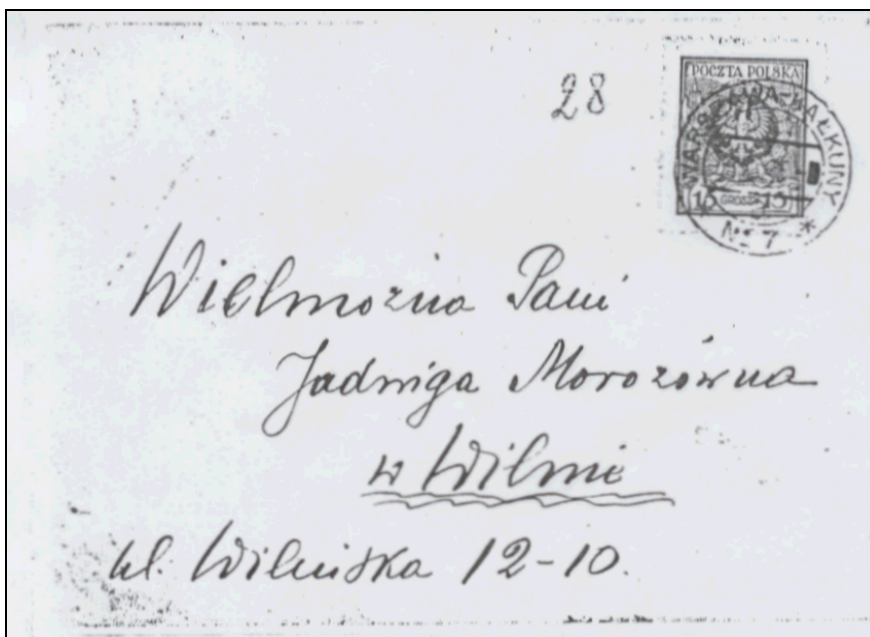 28
POCZTA POLSKA
WARSZAWA-KAŁKUNY
15 GROSZY 15
№ 7 *
Wielmożna Pani
Jadwiga Morozówna
w Wilnie
ul. Wileńska 12-10.